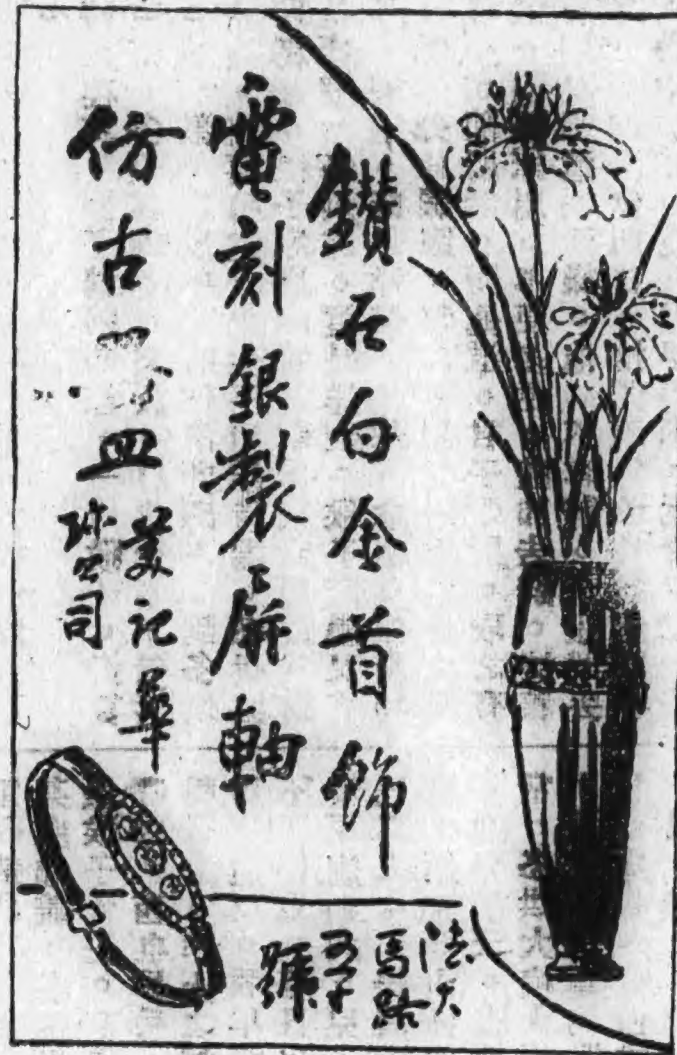 鑽石白金首飾
電刻銀製屏軸
仿古皿
美記華
珠公司
法大
馬路
五十
號